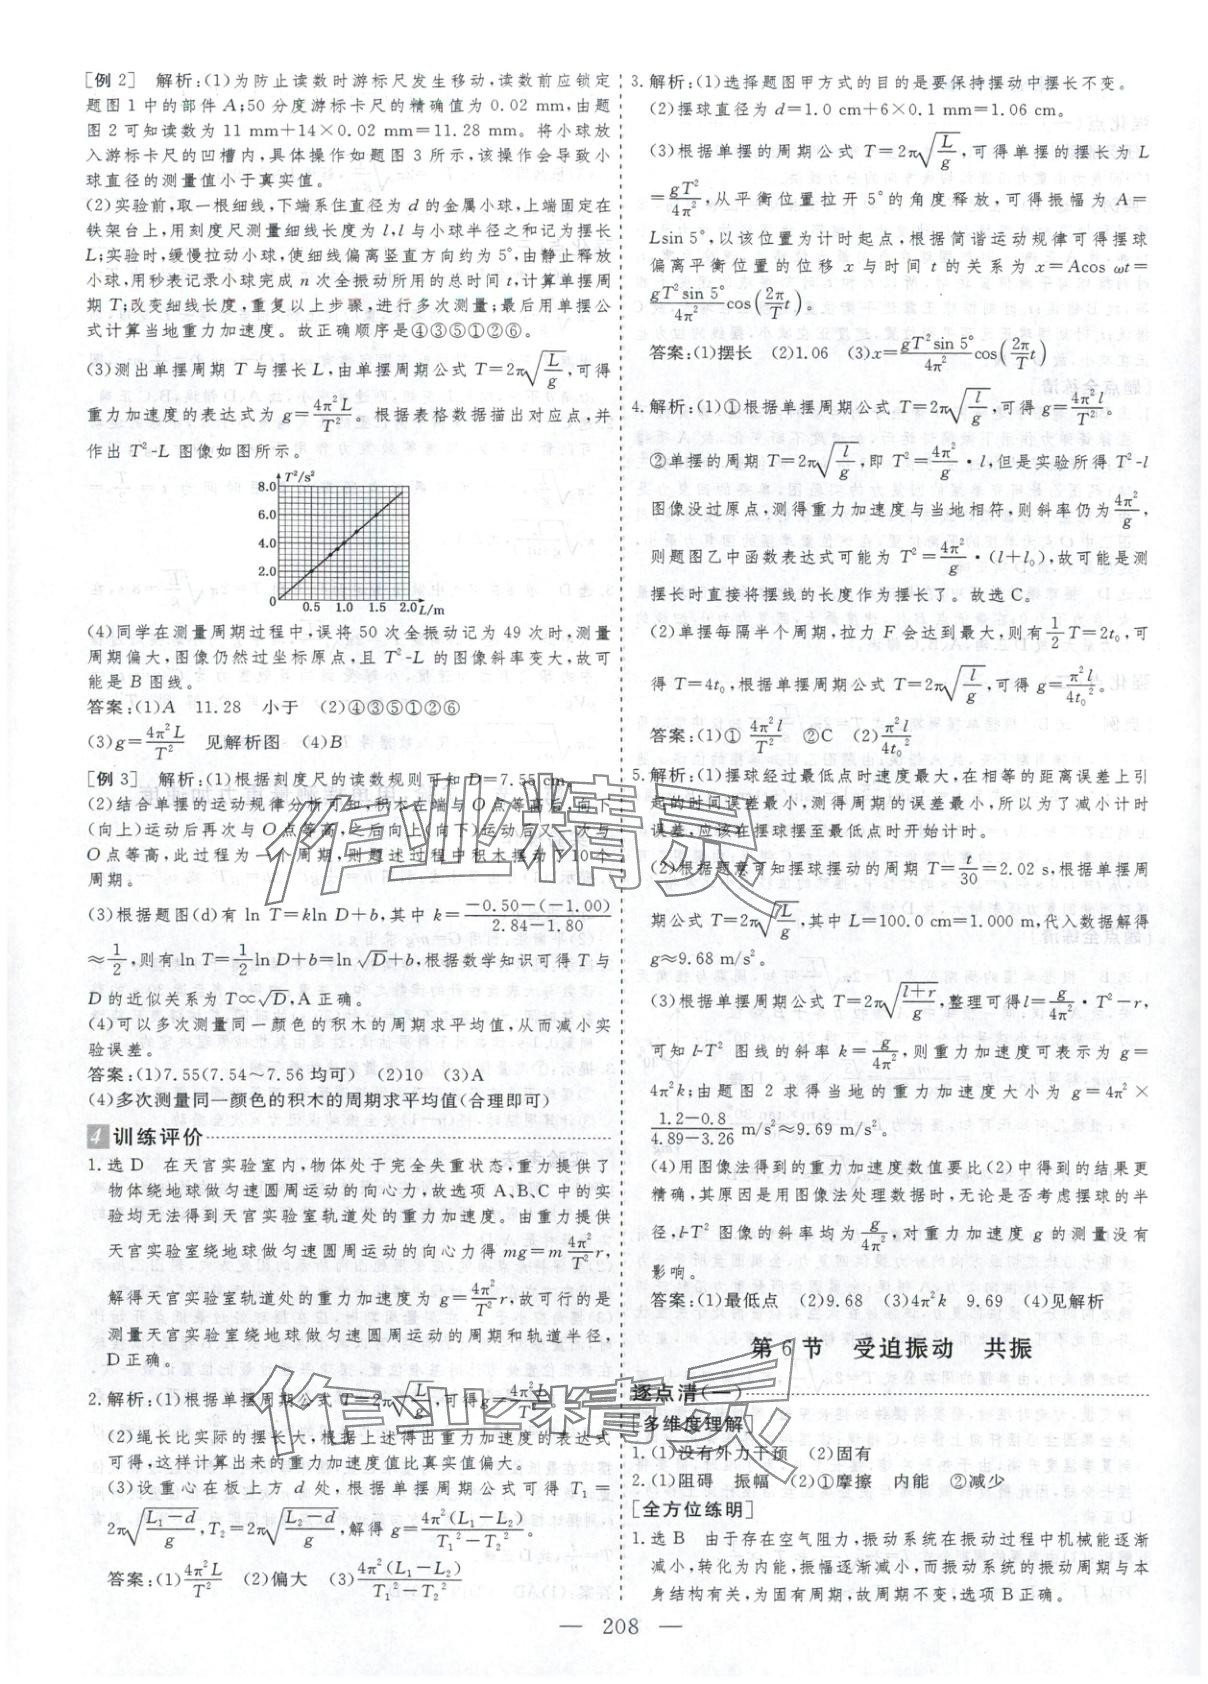 [例 2]　解析:(1)为防止读数时游标尺发生移动,读数前应锁定
题图 1 中的部件 A;50 分度游标卡尺的精确值为 0.02 mm,由题
图 2 可知读数为 11 mm+14×0.02 mm=11.28 mm。将小球放
入游标卡尺的凹槽内,具体操作如题图 3 所示,该操作会导致小
球直径的测量值小于真实值。
(2)实验前,取一根细线,下端系住直径为 d 的金属小球,上端固定在
铁架台上,用刻度尺测量细线长度为 l,l 与小球半径之和记为摆长
L;实验时,缓慢拉动小球,使细线偏离竖直方向约为 5°,由静止释放
小球,用秒表记录小球完成 n 次全振动所用的总时间 t,计算单摆周
期 T;改变细线长度,重复以上步骤,进行多次测量;最后用单摆公
式计算当地重力加速度。故正确顺序是④③⑤①②⑥。
(3)测出单摆周期 T 与摆长 L,由单摆周期公式 T=2π√(L/g),可得
重力加速度的表达式为 g=4π²L/T²。根据表格数据描出对应点,并
作出 T²-L 图像如图所示。
T²/s²
8.0
6.0
4.0
2.0
0
0.5 1.0 1.5 2.0 L/m
(4)同学在测量周期过程中,误将 50 次全振动记为 49 次时,测量
周期偏大,图像仍然过坐标原点,且 T²-L 的图像斜率变大,故可
能是 B 图线。
答案:(1)A　11.28　小于　(2)④③⑤①②⑥
(3)g=4π²L/T²　见解析图　(4)B
[例 3]　解析:(1)根据刻度尺的读数规则可知 D=7.55 cm。
(2)结合单摆的运动规律分析可知,积木在端与 O 点等高后,向下
(向上)运动后再次与 O 点等高,之后向上(向下)运动后又一次与
O 点等高,此过程为一个周期,则题述过程中积木摆动了 10 个
周期。
(3)根据题图(d)有 ln T=kln D+b,其中 k=(-0.50-(-1.00))/(2.84-1.80)
≈1/2,则有 ln T=1/2 ln D+b=ln √D+b,根据数学知识可得 T 与
D 的近似关系为 T∝√D,A 正确。
(4)可以多次测量同一颜色的积木的周期求平均值,从而减小实
验误差。
答案:(1)7.55(7.54～7.56 均可)　(2)10　(3)A
(4)多次测量同一颜色的积木的周期求平均值(合理即可)
4 训练评价
1.选 D　在天宫实验室内,物体处于完全失重状态,重力提供了
物体绕地球做匀速圆周运动的向心力,故选项 A、B、C 中的实
验均无法得到天宫实验室轨道处的重力加速度。由重力提供
天宫实验室绕地球做匀速圆周运动的向心力得 mg=m 4π²/T² r,
解得天宫实验室轨道处的重力加速度为 g=4π²/T² r,故可行的是
测量天宫实验室绕地球做匀速圆周运动的周期和轨道半径,
D 正确。
2.解析:(1)根据单摆周期公式 T=2π√(L/g),可得 g=4π²L/T²。
(2)绳长比实际的摆长大,根据上述得出重力加速度的表达式
可得,这样计算出来的重力加速度值比真实值偏大。
(3)设重心在板上方 d 处,根据单摆周期公式可得 T₁=
2π√((L₁-d)/g),T₂=2π√((L₂-d)/g),解得 g=4π²(L₁-L₂)/(T₁²-T₂²)。
答案:(1)4π²L/T²　(2)偏大　(3)4π²(L₁-L₂)/(T₁²-T₂²)
3.解析:(1)选择题图甲方式的目的是要保持摆动中摆长不变。
(2)摆球直径为 d=1.0 cm+6×0.1 mm=1.06 cm。
(3)根据单摆的周期公式 T=2π√(L/g),可得单摆的摆长为 L
=gT²/4π²,从平衡位置拉开 5°的角度释放,可得振幅为 A=
Lsin 5°,以该位置为计时起点,根据简谐运动规律可得摆球
偏离平衡位置的位移 x 与时间 t 的关系为 x=Acos ωt=
gT²sin 5°/4π² cos(2π/T t)。
答案:(1)摆长　(2)1.06　(3)x=gT²sin 5°/4π² cos(2π/T t)
4.解析:(1)①根据单摆周期公式 T=2π√(l/g),可得 g=4π²l/T²。
②单摆的周期 T=2π√(l/g),即 T²=4π²/g·l,但是实验所得 T²-l
图像没过原点,测得重力加速度与当地相符,则斜率仍为 4π²/g,
则题图乙中函数表达式可能为 T²=4π²/g·(l+l₀),故可能是测
摆长时直接将摆线的长度作为摆长了。故选 C。
(2)单摆每隔半个周期,拉力 F 会达到最大,则有 1/2 T=2t₀,可
得 T=4t₀,根据单摆周期公式 T=2π√(l/g),可得 g=π²l/4t₀²。
答案:(1)①4π²l/T²　②C　(2)π²l/4t₀²
5.解析:(1)摆球经过最低点时速度最大,在相等的距离误差上引
起的时间误差最小,测得周期的误差最小,所以为了减小计时
误差,应该在摆球摆至最低点时开始计时。
(2)根据题意可知摆球摆动的周期 T=t/30=2.02 s,根据单摆周
期公式 T=2π√(L/g),其中 L=100.0 cm=1.000 m,代入数据解得
g≈9.68 m/s²。
(3)根据单摆周期公式 T=2π√((l+r)/g),整理可得 l=g/4π²·T²-r,
可知 l-T² 图线的斜率 k=g/4π²,则重力加速度可表示为 g=
4π²k;由题图 2 求得当地的重力加速度大小为 g=4π²×
(1.2-0.8)/(4.89-3.26) m/s²≈9.69 m/s²。
(4)用图像法得到的重力加速度数值要比(2)中得到的结果更
精确,其原因是用图像法处理数据时,无论是否考虑摆球的半
径,l-T² 图像的斜率均为 g/4π²,对重力加速度 g 的测量没有
影响。
答案:(1)最低点　(2)9.68　(3)4π²k　9.69　(4)见解析
第 6 节　受迫振动　共振
逐点清(一)
[多维度理解]
1.(1)没有外力干预　(2)固有
2.(1)阻碍　振幅　(2)①摩擦　内能　②减少
[全方位练明]
1.选 B　由于存在空气阻力,振动系统在振动过程中机械能逐渐
减小,转化为内能,振幅逐渐减小,而振动系统的振动周期与本
身结构有关,为固有周期,故周期不变,选项 B 正确。
— 208 —
作业精灵
作业精灵